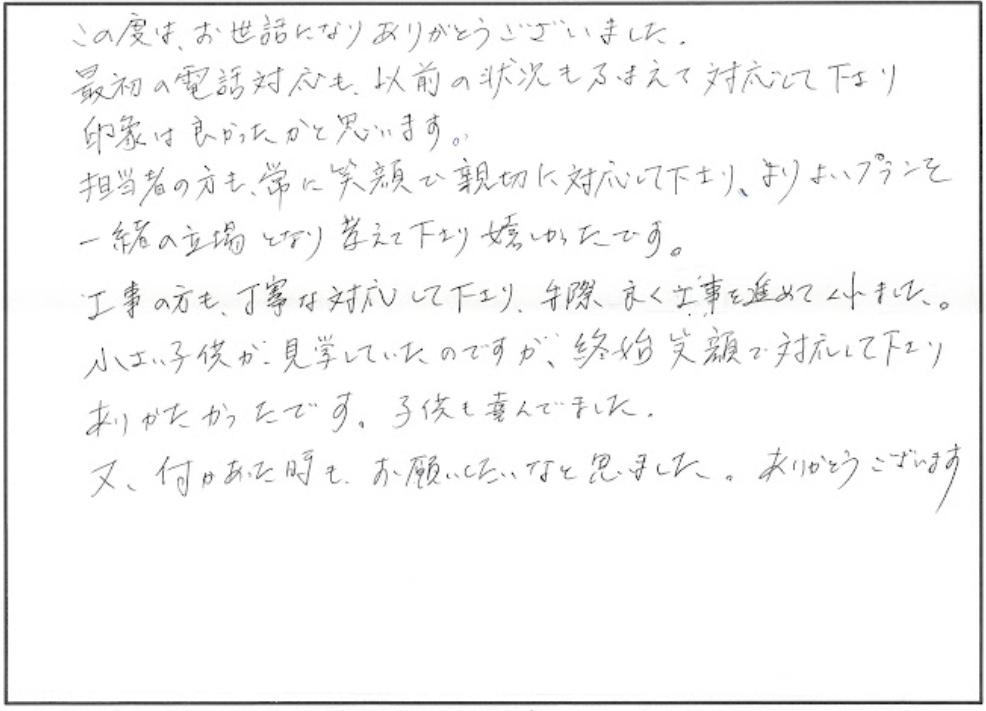 この度は、お世話になりありがとうございました.
最初の電話対応も、以前の状況もふまえて対応して下さり
印象は良かったかと思います。
担当者の方も、常に笑顔で親切に対応して下さり、よりよいプランを
一緒の立場となり考えて下さり嬉しかったです。
工事の方も、丁寧な対応して下さり、手際良く工事を進めてくれました。
小さい子供が見学していたのですが、終始笑顔で対応して下さり
ありがたかったです。子供も喜んでました.
又、何かあった時も、お願いしたいなと思いました。ありがとうございます